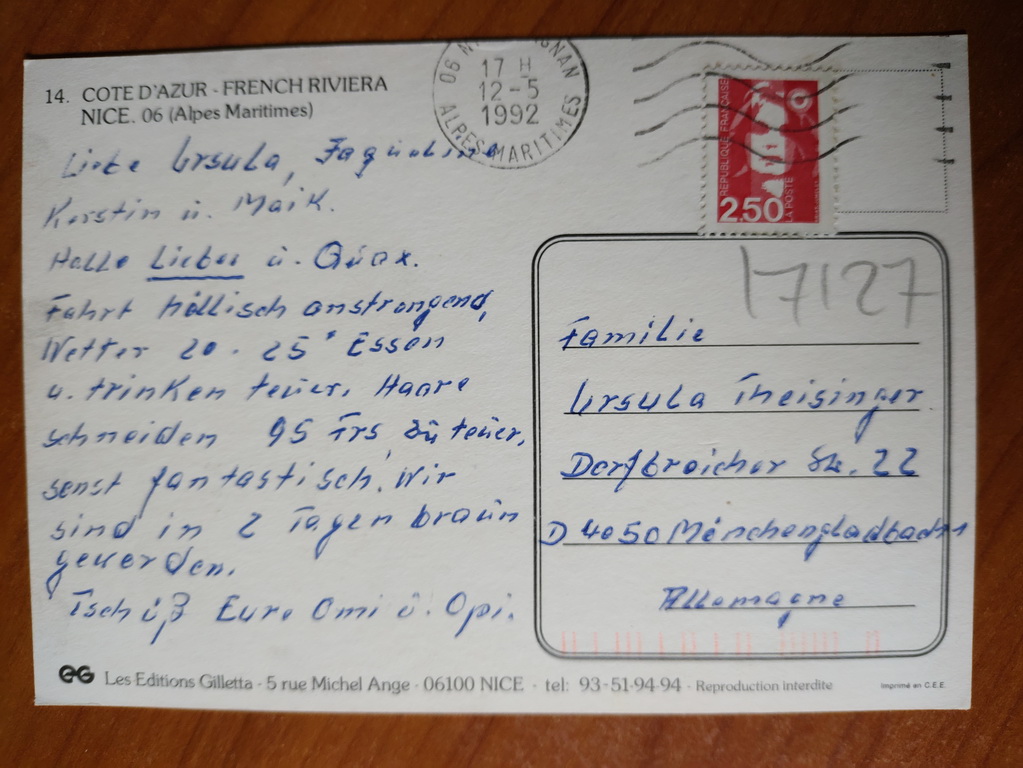 14. COTE D'AZUR - FRENCH RIVIERA
NICE. 06 (Alpes Maritimes)
Liebe Ursula, Jaquline
Kerstin u. Maik.
Hallo Lieber u. Quax.
Fahrt höllisch anstrengend,
Wetter 20 - 25° Essen
u. trinken teuer, Haare
schneiden 95 Frs, zu teuer,
sonst fantastisch. Wir
sind in 2 Tagen braun
geworden.
Tschüß Eure Omi u. Opi.
06 GNAN
17 H
12-5
1992
ALPES MARITIMES
REPUBLIQUE FRANÇAISE
2,50
LA POSTE
17127
Familie
Ursula Theisinger
Dorfbroicher Str. 22
D 4050 Mönchengladbach 1
Allemagne
eG Les Editions Gilletta - 5 rue Michel Ange - 06100 NICE - tel: 93-51-94-94 - Reproduction interdite
Imprimé en C.E.E.